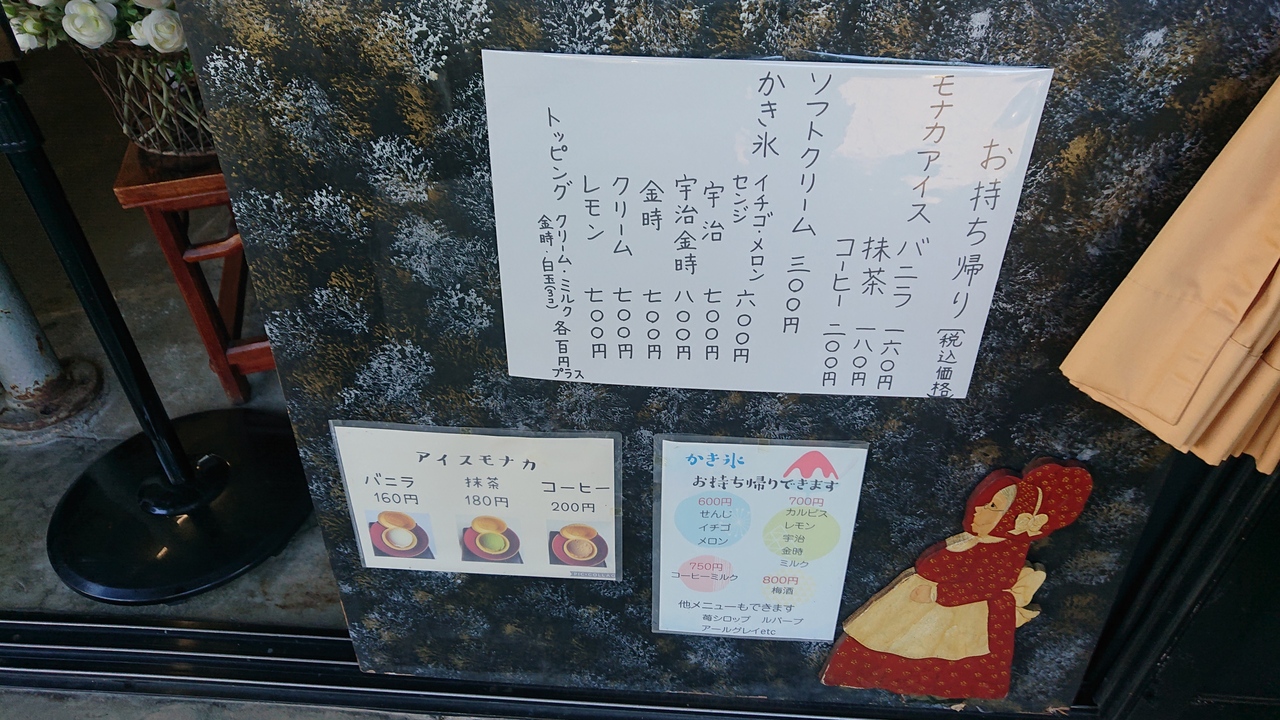 お持ち帰り〔税込価格
モナカアイス バニラ 一六〇円
抹茶 一八〇円
コーヒー 二〇〇円
ソフトクリーム 三〇〇円
かき氷 イチゴ・メロン センジ 六〇〇円
宇治 七〇〇円
宇治金時 八〇〇円
金時 七〇〇円
クリーム 七〇〇円
レモン 七〇〇円
トッピング クリーム・ミルク 金時・白玉(3コ) 各百円プラス
アイスモナカ
バニラ 抹茶 コーヒー
160円 180円 200円
かき氷
お持ち帰りできます
600円
せんじ
イチゴ
メロン
700円
カルピス
レモン
宇治
金時
ミルク
750円
コーヒーミルク
800円
梅酒
他メニューもできます
苺シロップ ルバーブ
アールグレイetc